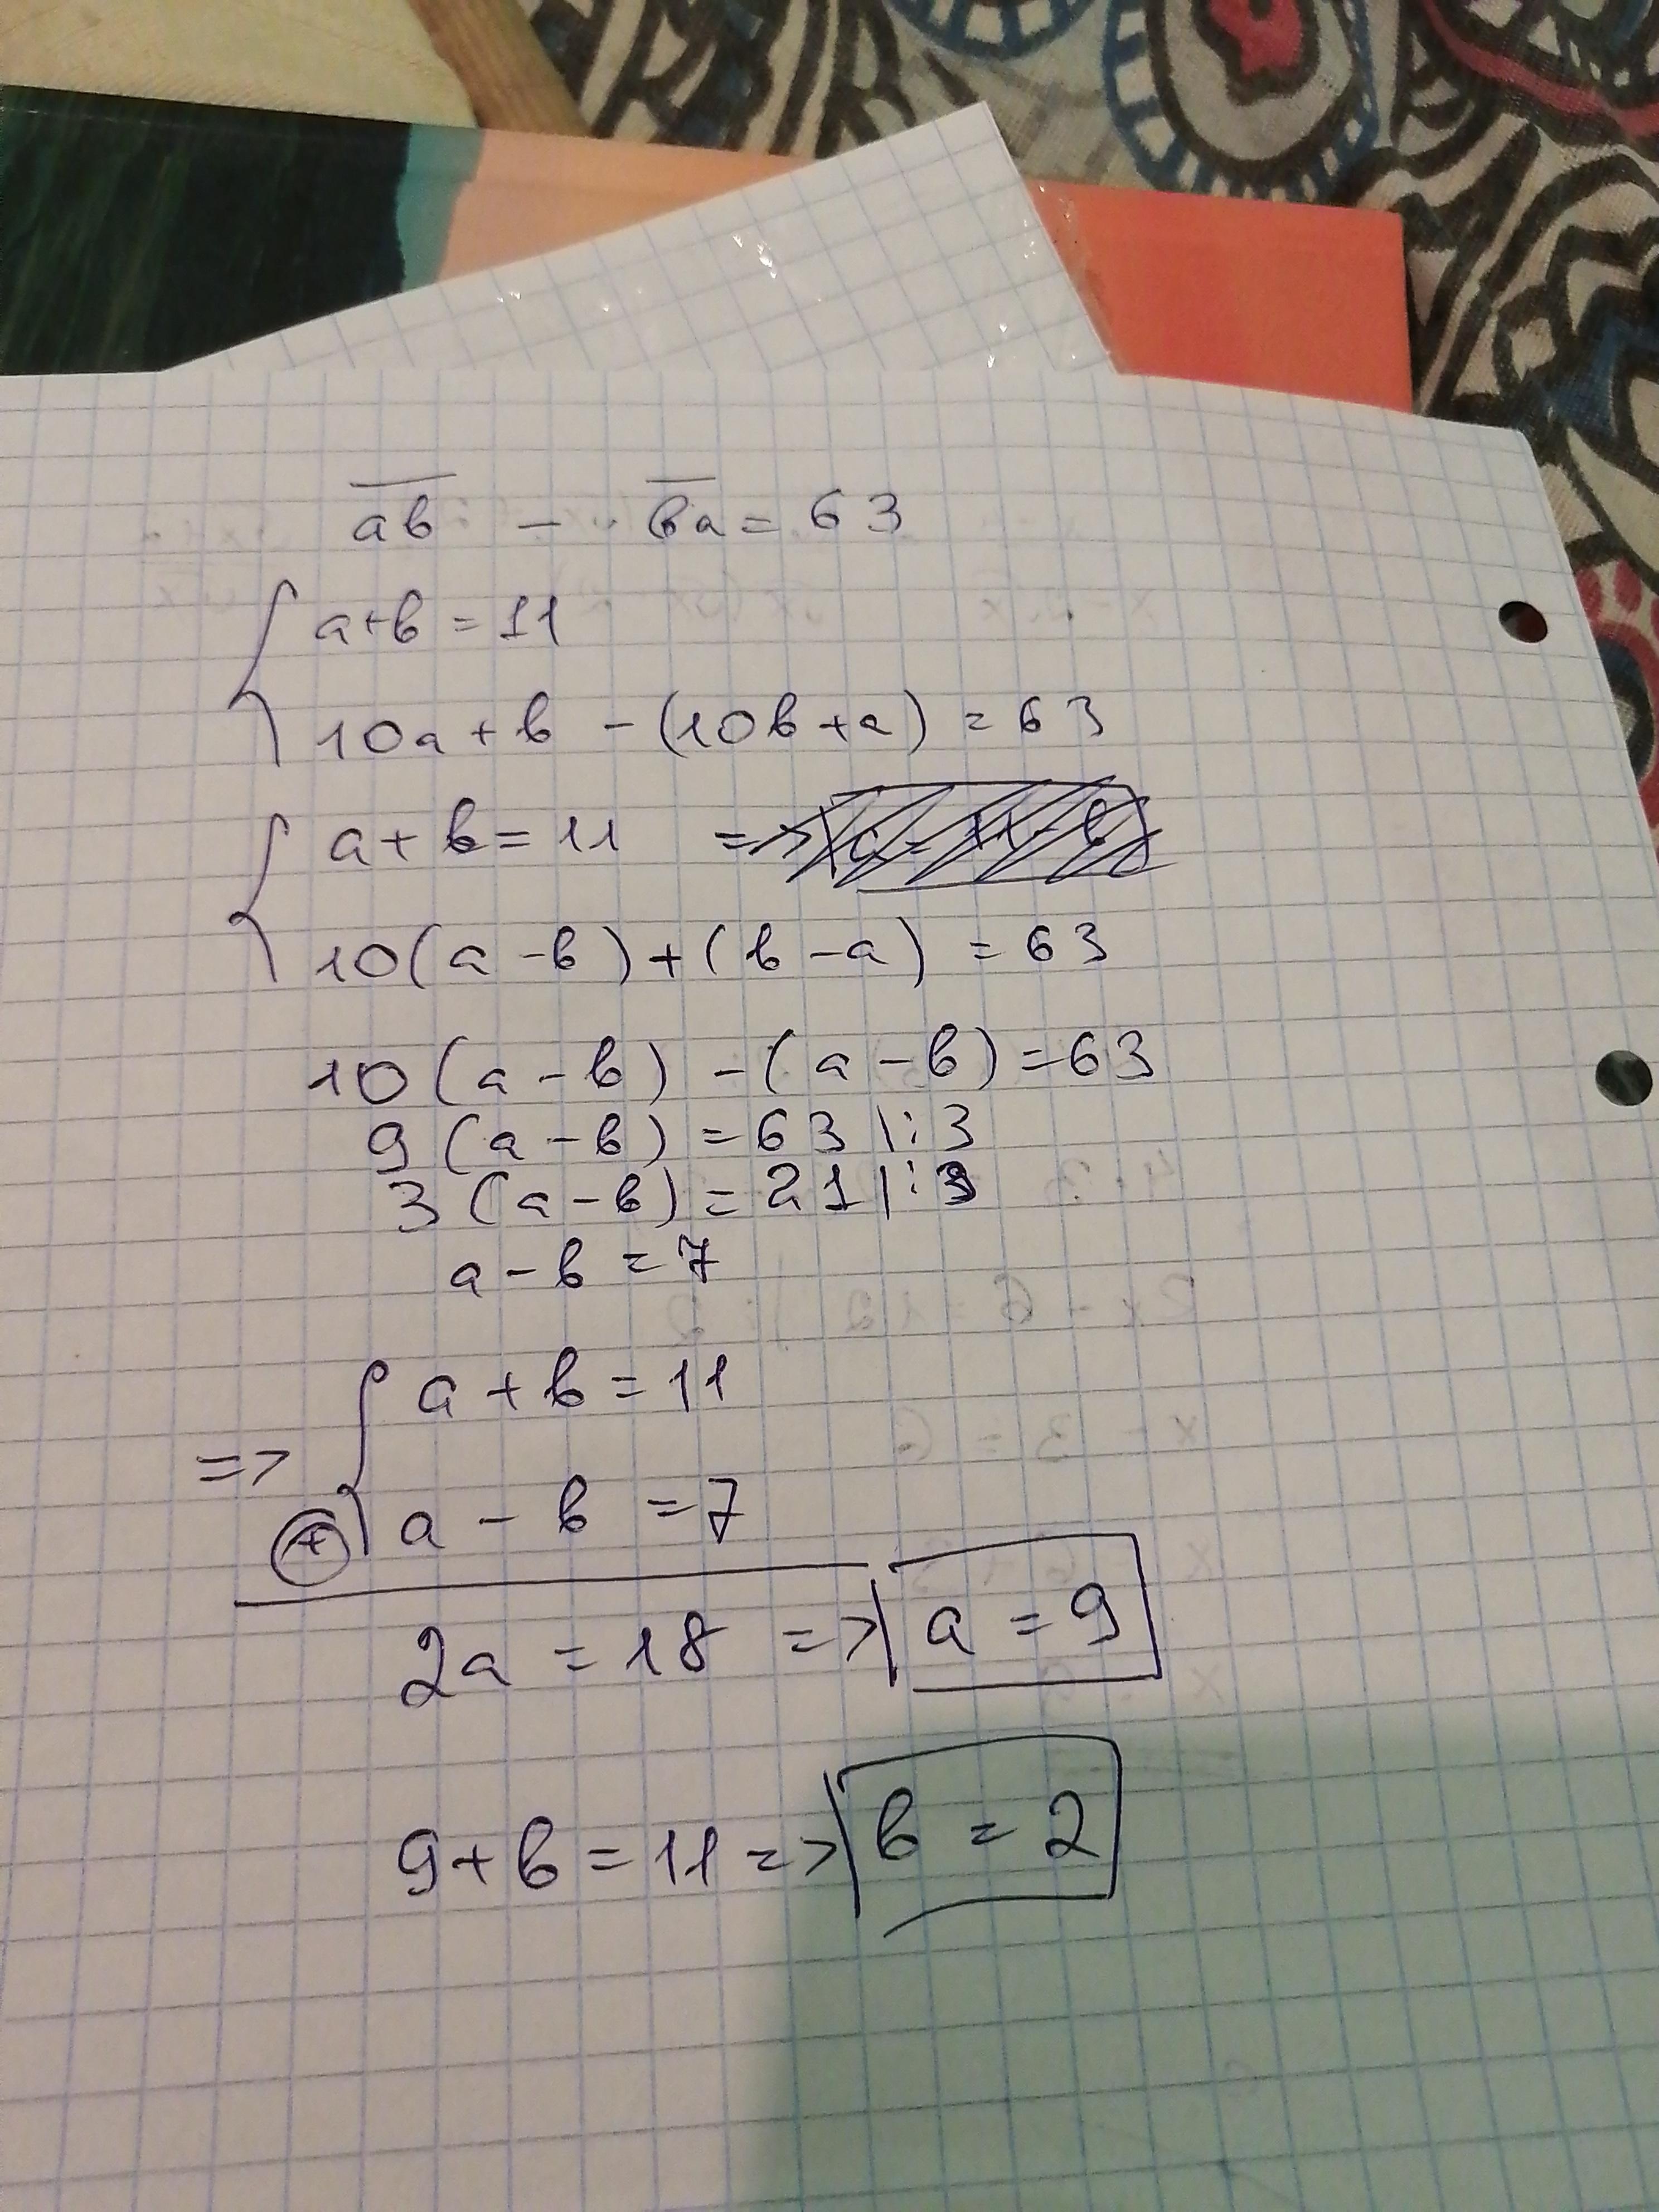 ab - ba = 63
a+b = 11
10a + b - (10b+a) = 63
a + b = 11 =>
10(a-b)+(b-a) = 63
10(a-b) -(a-b)=63
9(a-b)=63|:3
3(a-b)=21|:3
a-b=7
=> a+b=11
+ a-b=7
2a = 18 => a = 9
9+b=11 => b = 2